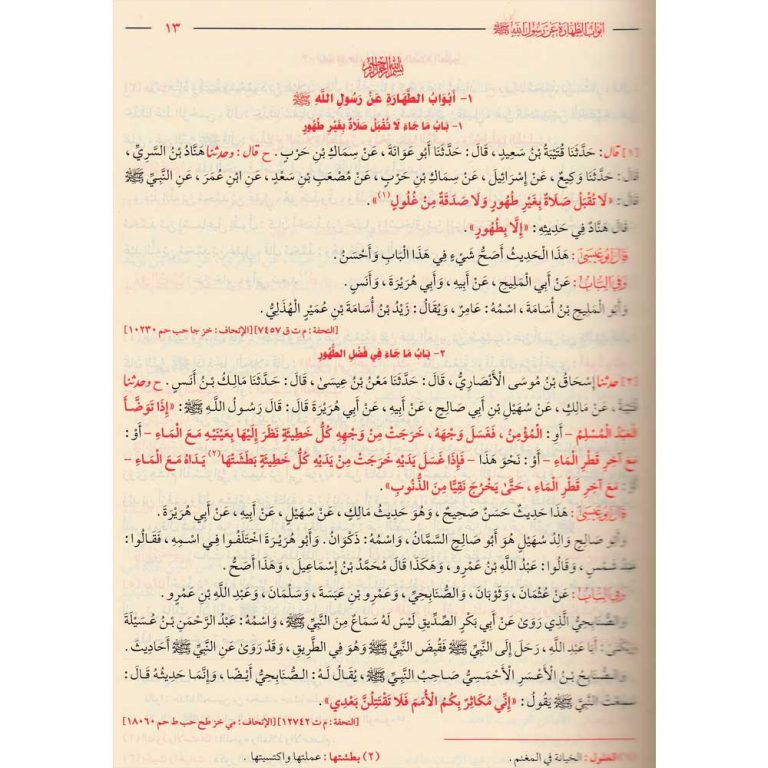 أبواب الطهارة عن رسول الله ﷺ ١٣
بسم الله الرحمن الرحيم
١- أَبْوَابُ الطَّهَارَةِ عَنْ رَسُولِ اللَّهِ ﷺ
١- بَابُ مَا جَاءَ لَا تُقْبَلُ صَلَاةٌ بِغَيْرِ طُهُورٍ
[١] قال: حَدَّثَنَا قُتَيْبَةُ بْنُ سَعِيدٍ، قَالَ: حَدَّثَنَا أَبُو عَوَانَةَ، عَنْ سِمَاكِ بْنِ حَرْبٍ. ح قال: وحدثنا هَنَّادُ بْنُ السَّرِيِّ،
قَالَ: حَدَّثَنَا وَكِيعٌ، عَنْ إِسْرَائِيلَ، عَنْ سِمَاكِ بْنِ حَرْبٍ، عَنْ مُصْعَبِ بْنِ سَعْدٍ، عَنِ ابْنِ عُمَرَ، عَنِ النَّبِيِّ ﷺ
قَالَ: «لَا تُقْبَلُ صَلَاةٌ بِغَيْرِ طُهُورٍ وَلَا صَدَقَةٌ مِنْ غُلُولٍ(١)».
قَالَ هَنَّادٌ فِي حَدِيثِهِ: «إِلَّا بِطُهُورٍ».
قال أبو عيسى: هَذَا الْحَدِيثُ أَصَحُّ شَيْءٍ فِي هَذَا الْبَابِ وَأَحْسَنُ.
وفي الباب: عَنْ أَبِي الْمَلِيحِ، عَنْ أَبِيهِ، وَأَبِي هُرَيْرَةَ، وَأَنَسٍ.
وَأَبُو الْمَلِيحِ بْنُ أُسَامَةَ، اسْمُهُ: عَامِرٌ، وَيُقَالُ: زَيْدُ بْنُ أُسَامَةَ بْنِ عُمَيْرٍ الْهُذَلِيُّ.
[التحفة: م ت ق ٧٤٥٧] [الإتحاف: خز جا حب حم ١٠٢٣٠]
٢- بَابُ مَا جَاءَ فِي فَضْلِ الطُّهُورِ
[٢] حدثنا إِسْحَاقُ بْنُ مُوسَى الْأَنْصَارِيُّ، قَالَ: حَدَّثَنَا مَعْنُ بْنُ عِيسَى، قَالَ: حَدَّثَنَا مَالِكُ بْنُ أَنَسٍ. ح وحدثنا
قُتَيْبَةُ، عَنْ مَالِكٍ، عَنْ سُهَيْلِ بْنِ أَبِي صَالِحٍ، عَنْ أَبِيهِ، عَنْ أَبِي هُرَيْرَةَ قَالَ: قَالَ رَسُولُ اللَّهِ ﷺ: «إِذَا تَوَضَّأَ
الْعَبْدُ الْمُسْلِمُ – أَوِ: الْمُؤْمِنُ، فَغَسَلَ وَجْهَهُ، خَرَجَتْ مِنْ وَجْهِهِ كُلُّ خَطِيئَةٍ نَظَرَ إِلَيْهَا بِعَيْنَيْهِ مَعَ الْمَاءِ – أَوْ:
مَعَ آخِرِ قَطْرِ الْمَاءِ – أَوْ: نَحْوَ هَذَا – فَإِذَا غَسَلَ يَدَيْهِ خَرَجَتْ مِنْ يَدَيْهِ كُلُّ خَطِيئَةٍ بَطَشَتْهَا(٢) يَدَاهُ مَعَ الْمَاءِ –
أَوْ: مَعَ آخِرِ قَطْرِ الْمَاءِ، حَتَّى يَخْرُجَ نَقِيًّا مِنَ الذُّنُوبِ».
قال أبو عيسى: هَذَا حَدِيثٌ حَسَنٌ صَحِيحٌ، وَهُوَ حَدِيثُ مَالِكٍ، عَنْ سُهَيْلٍ، عَنْ أَبِيهِ، عَنْ أَبِي هُرَيْرَةَ.
وَأَبُو صَالِحٍ وَالِدُ سُهَيْلٍ هُوَ أَبُو صَالِحٍ السَّمَّانُ، وَاسْمُهُ: ذَكْوَانُ. وَأَبُو هُرَيْرَةَ اخْتَلَفُوا فِي اسْمِهِ، فَقَالُوا:
عَبْدُ شَمْسٍ، وَقَالُوا: عَبْدُ اللَّهِ بْنُ عَمْرٍو، وَهَكَذَا قَالَ مُحَمَّدُ بْنُ إِسْمَاعِيلَ، وَهَذَا أَصَحُّ.
وفي الباب: عَنْ عُثْمَانَ، وَثَوْبَانَ، وَالصُّنَابِحِيِّ، وَعَمْرِو بْنِ عَبَسَةَ، وَسَلْمَانَ، وَعَبْدِ اللَّهِ بْنِ عَمْرٍو.
وَالصُّنَابِحِيُّ الَّذِي رَوَى عَنْ أَبِي بَكْرٍ الصِّدِّيقِ لَيْسَ لَهُ سَمَاعٌ مِنَ النَّبِيِّ ﷺ، وَاسْمُهُ: عَبْدُ الرَّحْمَنِ بْنُ عُسَيْلَةَ
وَيُكْنَى: أَبَا عَبْدِ اللَّهِ، رَحَلَ إِلَى النَّبِيِّ ﷺ فَقُبِضَ النَّبِيُّ ﷺ وَهُوَ فِي الطَّرِيقِ، وَقَدْ رَوَى عَنِ النَّبِيِّ ﷺ أَحَادِيثَ.
وَالصُّنَابِحُ بْنُ الْأَعْسَرِ الْأَحْمَسِيُّ صَاحِبُ النَّبِيِّ ﷺ، يُقَالُ لَهُ: الصُّنَابِحِيُّ أَيْضًا، وَإِنَّمَا حَدِيثُهُ قَالَ:
سَمِعْتُ النَّبِيَّ ﷺ يَقُولُ: «إِنِّي مُكَاثِرٌ بِكُمُ الْأُمَمَ فَلَا تَقْتَتِلُنَّ بَعْدِي».
[التحفة: م ت ١٢٧٤٢] [الإتحاف: مي خز طح حب ط حم ١٨٠٦٠]
(١) الغلول: الخيانة في المغنم. (٢) بطشتها: عملتها واكتسبتها.